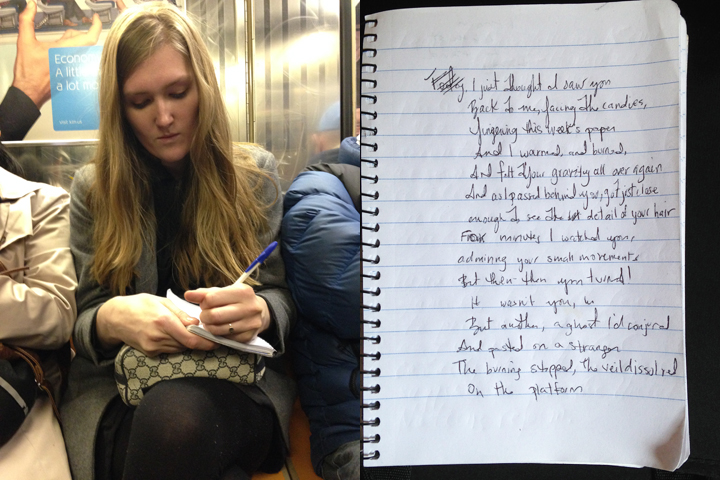 Econo
A littl
a lot mo
I just thought I saw you
Back to me, facing the candies,
Fingering this week's paper
And I warmed, and burned,
And felt your gravity all over again
And as I passed behind you, got just close
enough to see the detail of your hair
For minutes I watched you,
admiring your small movements
But then you turned!
It wasn't you,
But another, a ghost I'd conjured
And pasted on a stranger
The burning stopped, the veil dissolved
On the platform